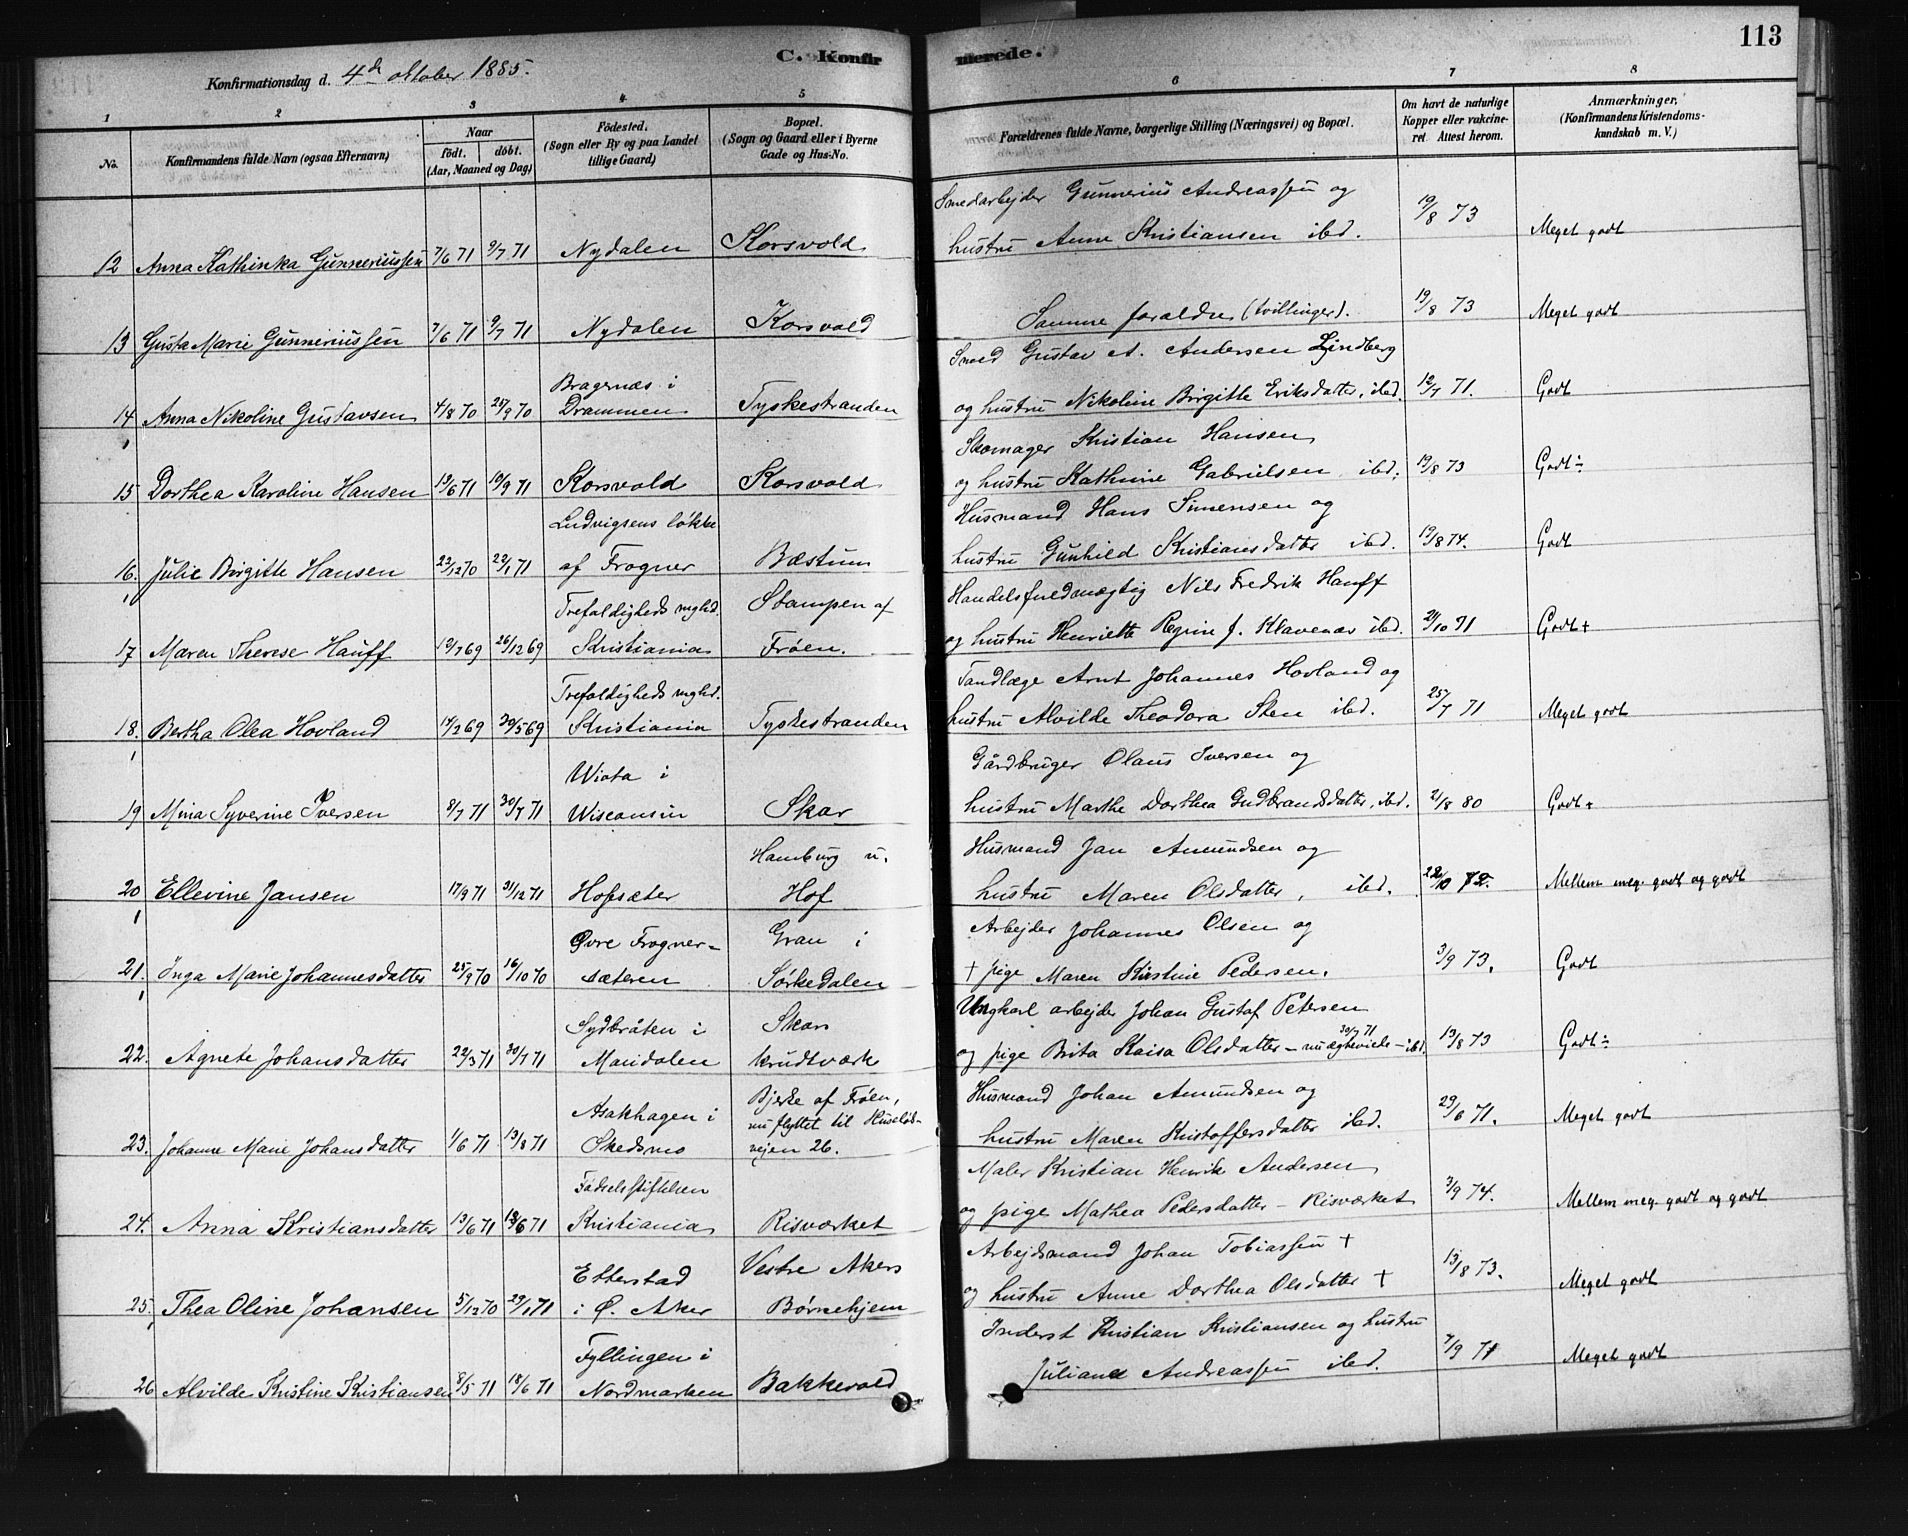 113
C. Konfirmerede.
Konfirmationsdag d. 4de oktober 1885.
1 2 3 4 5 6 7 8
No.
Konfirmandens fulde Navn (ogsaa Efternavn)
Naar
födt. döbt.
(Aar, Maaned og Dag)
Födested.
(Sogn eller By og paa Landet
tillige Gaard)
Bopæl.
(Sogn og Gaard eller i Byerne
Gade og Hus-No.
Forældrenes fulde Navne, borgerlige Stilling (Næringsvei) og Bopæl.
Om havt de naturlige
Kopper eller vakcine-
ret Attest herom.
Anmærkninger,
(Konfirmandens Kristendoms-
kundskab m. V.)
Smedarbejder Gunnerius Andreassen og
12 Anna Kathinka Gunneriussen 7/6 71 9/7 71 Nydalen Korsvold hustru Anne Kristiansen ibd. 19/8 73 Meget godt
13 Gusta Marie Gunneriussen 7/6 71 9/7 71 Nydalen Korsvold Samme foraldre (tvillinger). 19/8 73 Meget godt
Bragernæs i Smed Gustav A. Andersen Lindberg
14 Anna Nikoline Gustavsen 4/8 70 25/9 70 Drammen Tyskestranden og hustru Nikoline Birgitte Eriksdatter, ibd. 12/7 71. Godt
Skomager Kristian Hansen
15 Dorthea Karoline Hansen 13/6 71 10/9 71 Korsvold Korsvold og hustru Kathrine Gabrielsen ibd. 19/8 73 Godt÷
Ludvigsens løkke Husmand Hans Simensen og
16. Julie Birgitte Hansen 22/12 70 29/1 71 af Frogner Bæstum hustru Gunhild Kristiansdatter ibd. 19/8 74. Godt
Trefoldigheds mghd. Stampen af Handelsfuldmægtig Nils Fredrik Hauff
17 Maren Therese Hauff 19/7 69 26/12 69 Kristiania Frøen. og hustru Henriette Regine J. Klavenæs ibd. 21/10 71 Godt+
Trefoldigheds mghd. Tandlæge Arnt Johannes Hovland og
18. Bertha Olea Hovland 14/2 69 30/5 69 Kristiania Tyskestranden hustru Alvilde Theodora Sten ibd. 25/7 71 Meget godt
Wiota i Gårdbruger Olaus Iversen og
19 Mina Syverine Iversen 8/7 71 30/7 71 Wisconsin Skar hustru Marthe Dorthea Gudbrandsdatter, ibd. 2/8 80 Godt+
Hamburg u. Husmand Jan Amundsen og
20 Ellevine Jansen 17/9 71 31/12 71 Hofsæter Hof hustru Maren Olsdatter, ibd. 22/10 72. Mellem meg. godt og godt
Øvre Frogner- Gran i Arbejder Johannes Olsen og
21. Inga Marie Johannesdatter 25/9 70 16/10 70 sæteren Sørkedalen + pige Maren Kirstine Pedersen. 3/9 73. Godt
Sydbråten i Skars Ungkarl arbejder Johan Gustaf Petersen
22. Agnete Johansdatter 22/3 71 30/7 71 Maridalen krudtværk og pige Brita Kaisa Olsdatter – nu ægteviede 30/7 71 – ibd. 13/8 73 Godt÷
Asakhagen i Bjerke af Frøen, Husmand Johan Amundsen og
nu flyttet til Huseløk-
23. Johanne Marie Johansdatter 1/6 71 13/8 71 Skedsmo vejen 26. hustru Maren Kristoffersdatter ibd. 29/6 71. Meget godt
Fødselsstiftelsen Maler Kristian Henrik Andersen
24. Anna Kristiansdatter 13/6 71 18/6 71 Kristiania Risværket og pige Mathea Pedersdatter – Risværket 3/9 74. Mellem meg. godt og godt
Etterstad Vestre Akers Arbejdsmand Johan Tobiassen +
25. Thea Oline Johansen 5/12 70 29/1 71 i Ø. Aker Børnehjem og hustru Anne Dorthea Olsdatter + 13/8 73. Meget godt
Fyllingen i Inderst Kristian Kristiansen og hustru
26 Alvilde Kristine Kristiansen 8/5 71 18/6 71 Nordmarken Bakkevold Juliane Andreassen ibd. 7/9 71 Meget godt